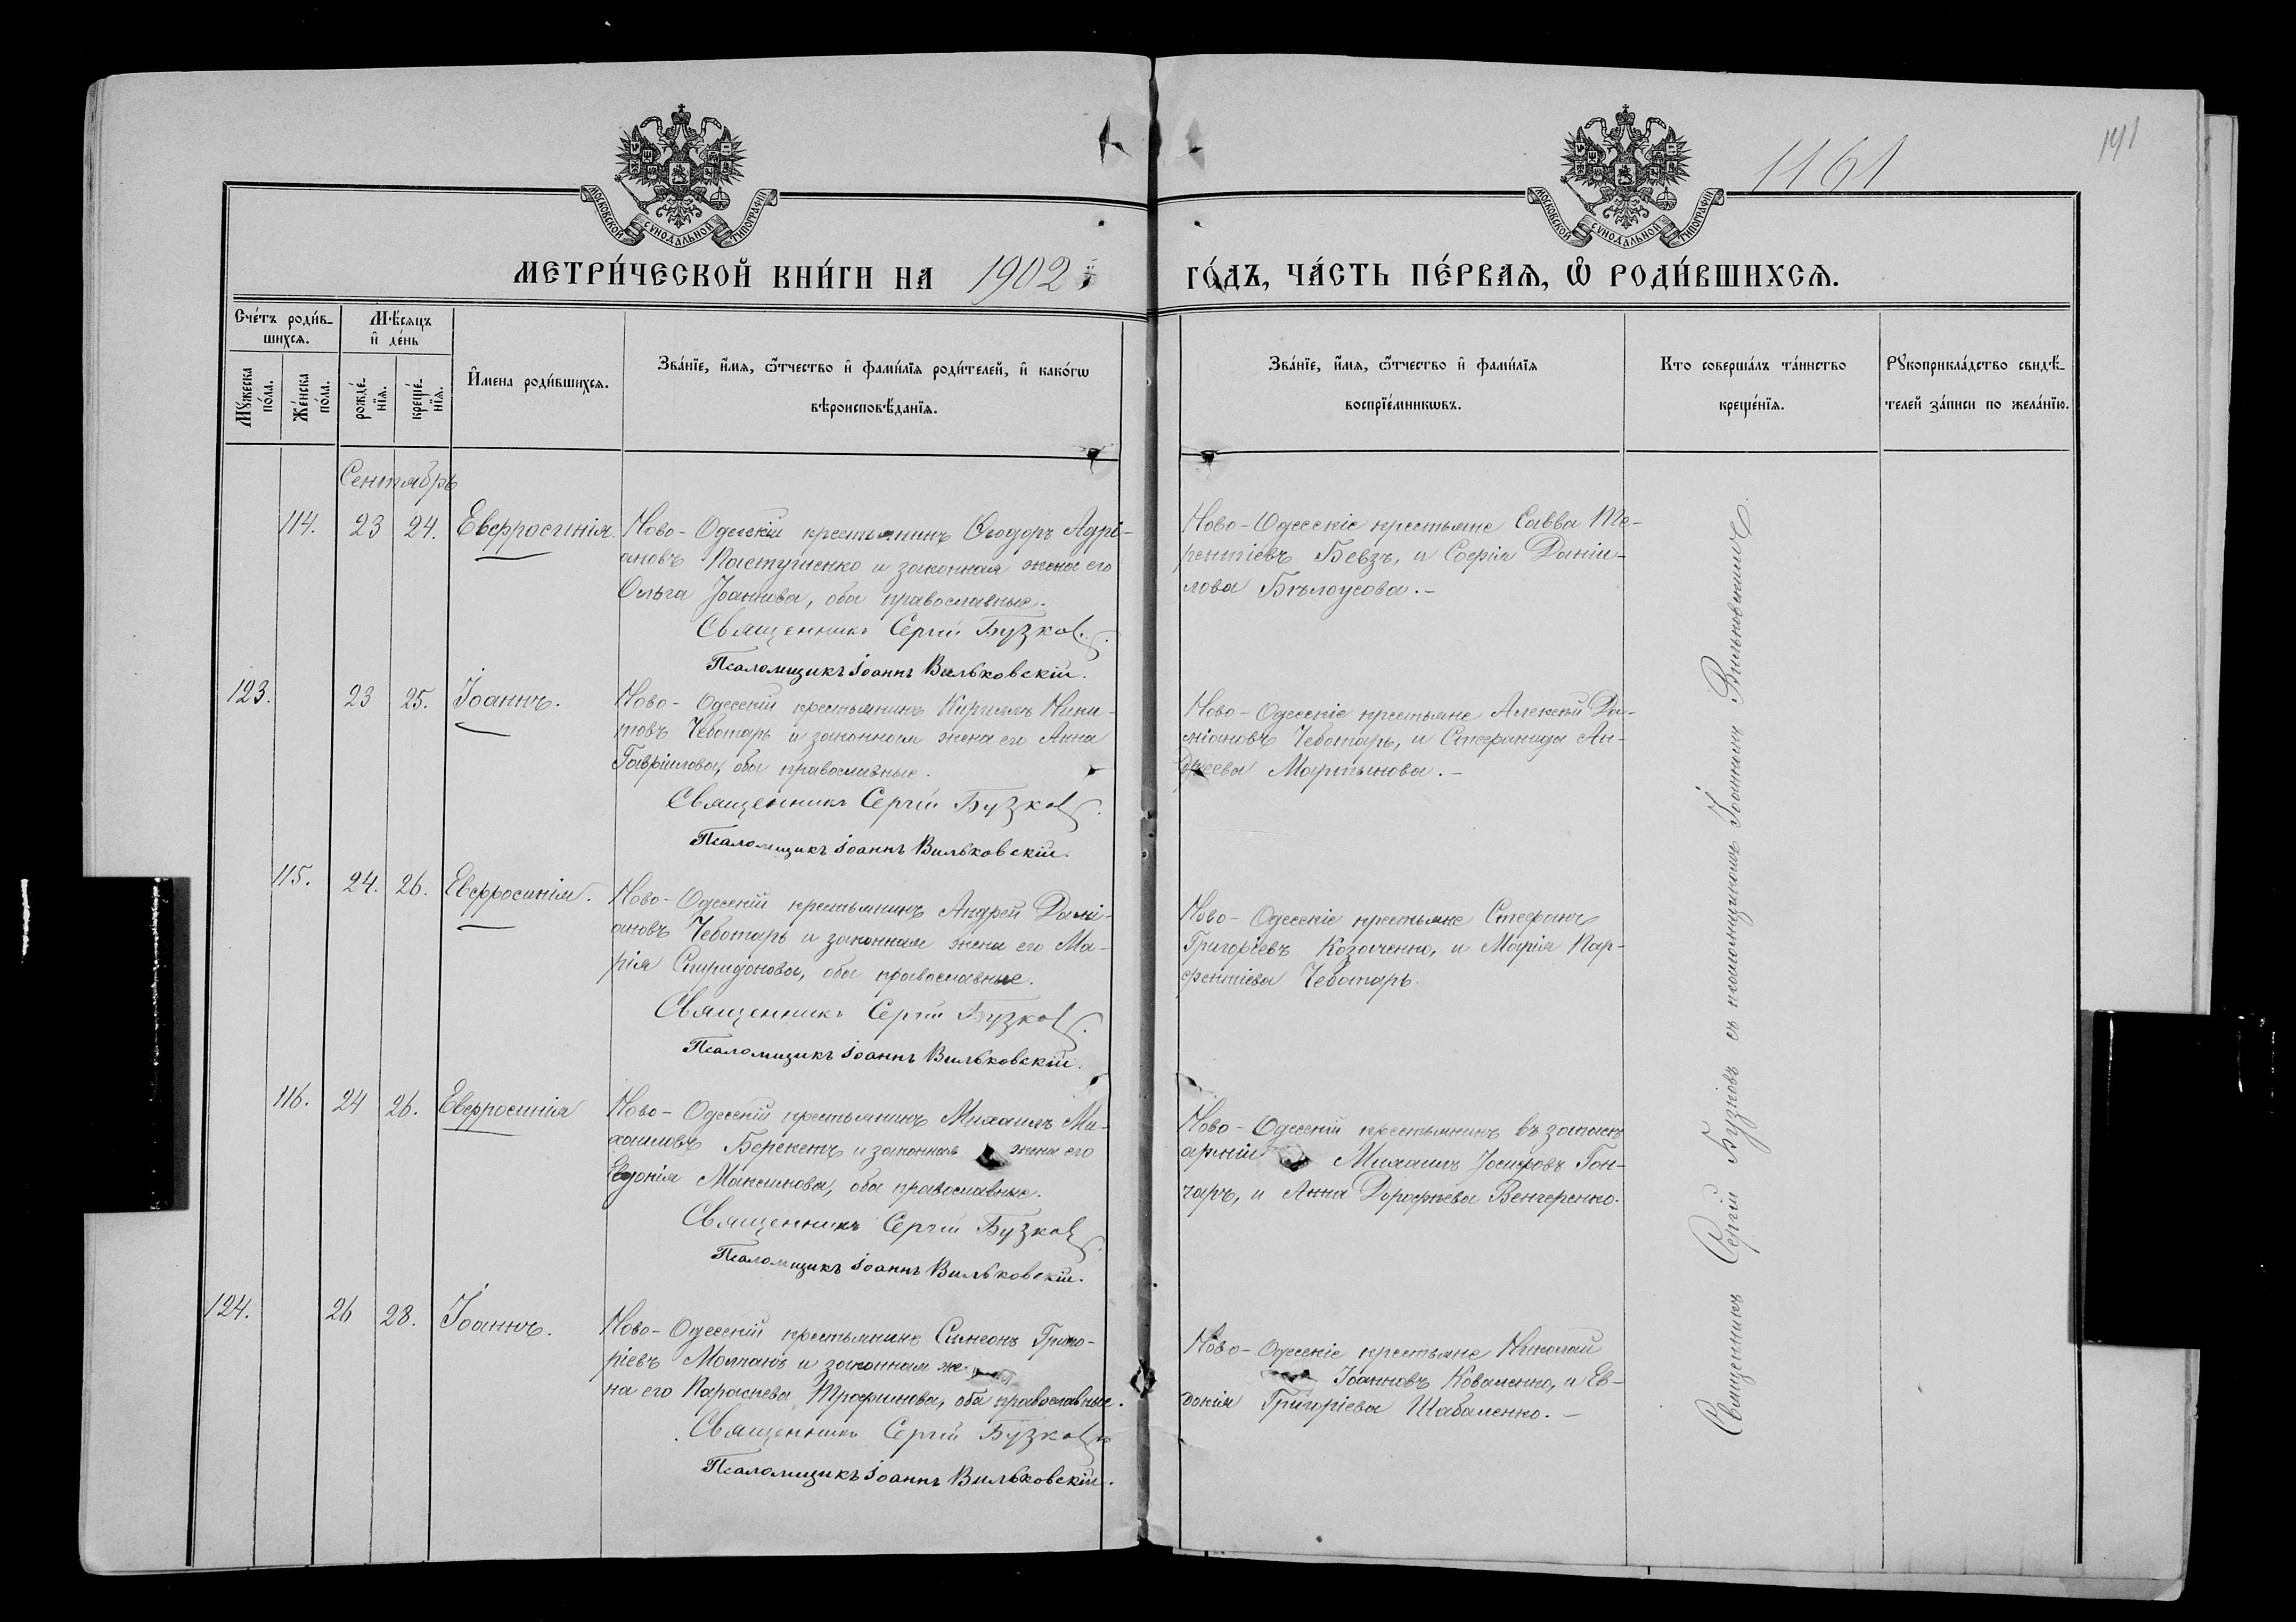 1161
191
МОСКОВСКОЙ СУНОДАЛЬНОЙ ТИПОГРАФІИ
МОСКОВСКОЙ СУНОДАЛЬНОЙ ТИПОГРАФІИ
МЕТРИ́ЧЕСКОЙ КНИ́ГИ НА 1902
ГО́ДЪ, ЧА́СТЬ ПЕ́РВАѦ, Ѡ҆ РОДИ́ВШИХСѦ.
Сче́тъ роди́в-
шихсѧ.
Мꙋ́жеска по́ла.
Же́нска по́ла.
Мѣ́сѧцъ
и҆ де́нь
рожде́-
нїѧ.
креще́-
нїѧ.
И҆мена роди́вшихсѧ.
Зва́нїе, и҆́мѧ, ѻ҆́тчество и҆ фами́лїѧ роди́телей, и҆ како́гѡ
вѣроисповѣ́данїѧ.
Зва́нїе, и҆́мѧ, ѻ҆́тчество и҆ фами́лїѧ
воспрїе́мникѡвъ.
Кто соверша́лъ та́инство
креще́нїѧ.
Рꙋкоприкла́дство свидѣ́-
телей за́писи по жела́нїю.
Сентябрь
114. 23 24. Евфросинія.
Ново-Одесскій крестьянинъ Ѳеодоръ Адрі-
ановъ Пастушенко и законная жена его
Ольга Іоаннова, оба православные.
Священникъ Сергій Бузков.
Псаломщикъ Іоаннъ Вильковскій.
Ново-Одесскіе крестьяне Савва Те-
рентіевъ Бевзъ, и Софія Даніи-
лова Бѣлоусова.-
123. 23 25. Іоаннъ.
Ново-Одесскій крестьянинъ Кириллъ Ники-
товъ Чеботарь и законная жена его Анна
Гавріилова, оба православные.
Священникъ Сергій Бузков.
Псаломщикъ Іоаннъ Вильковскій.
Ново-Одесскіе крестьяне Алексѣй Да-
міановъ Чеботарь, и Стефанида Ан-
дреева Мартынова.-
115. 24. 26. Евфросинія.
Ново-Одесскій крестьянинъ Андрей Дамі-
ановъ Чеботарь и законная жена его Ма-
рія Спиридонова, оба православные.
Священникъ Сергій Бузков.
Псаломщикъ Іоаннъ Вильковскій.
Ново-Одесскіе крестьяне Стефанъ
Григоріевъ Козаченко, и Марія Пар-
фентіева Чеботарь.
116. 24 26. Евфросинія
Ново-Одесскій крестьянинъ Михаилъ Ми-
хаиловъ Берекетъ и законная жена его
Евдокія Максимова, оба православные.
Священникъ Сергій Бузков.
Псаломщикъ Іоаннъ Вильковскій.
Ново-Одесскій крестьянинъ въ запасѣ
арміи Михаилъ Іосифовъ Гон-
чаръ, и Анна Дорофѣева Венгеренко.
124. 26 28. Іоаннъ.
Ново-Одесскій крестьянинъ Симеонъ Григо-
ріевъ Молчанъ и законная же-
на его Параскева Трофимова, оба православные.
Священникъ Сергій Бузковъ
Псаломщикъ Іоаннъ Вильковскій.
Ново-Одесскіе крестьяне Николай
Іоанновъ Коваленко, и Ев-
докія Григоріева Шабаленко.-
Священникъ Сергій Бузковъ съ псаломщикомъ Іоанномъ Вильковскимъ.